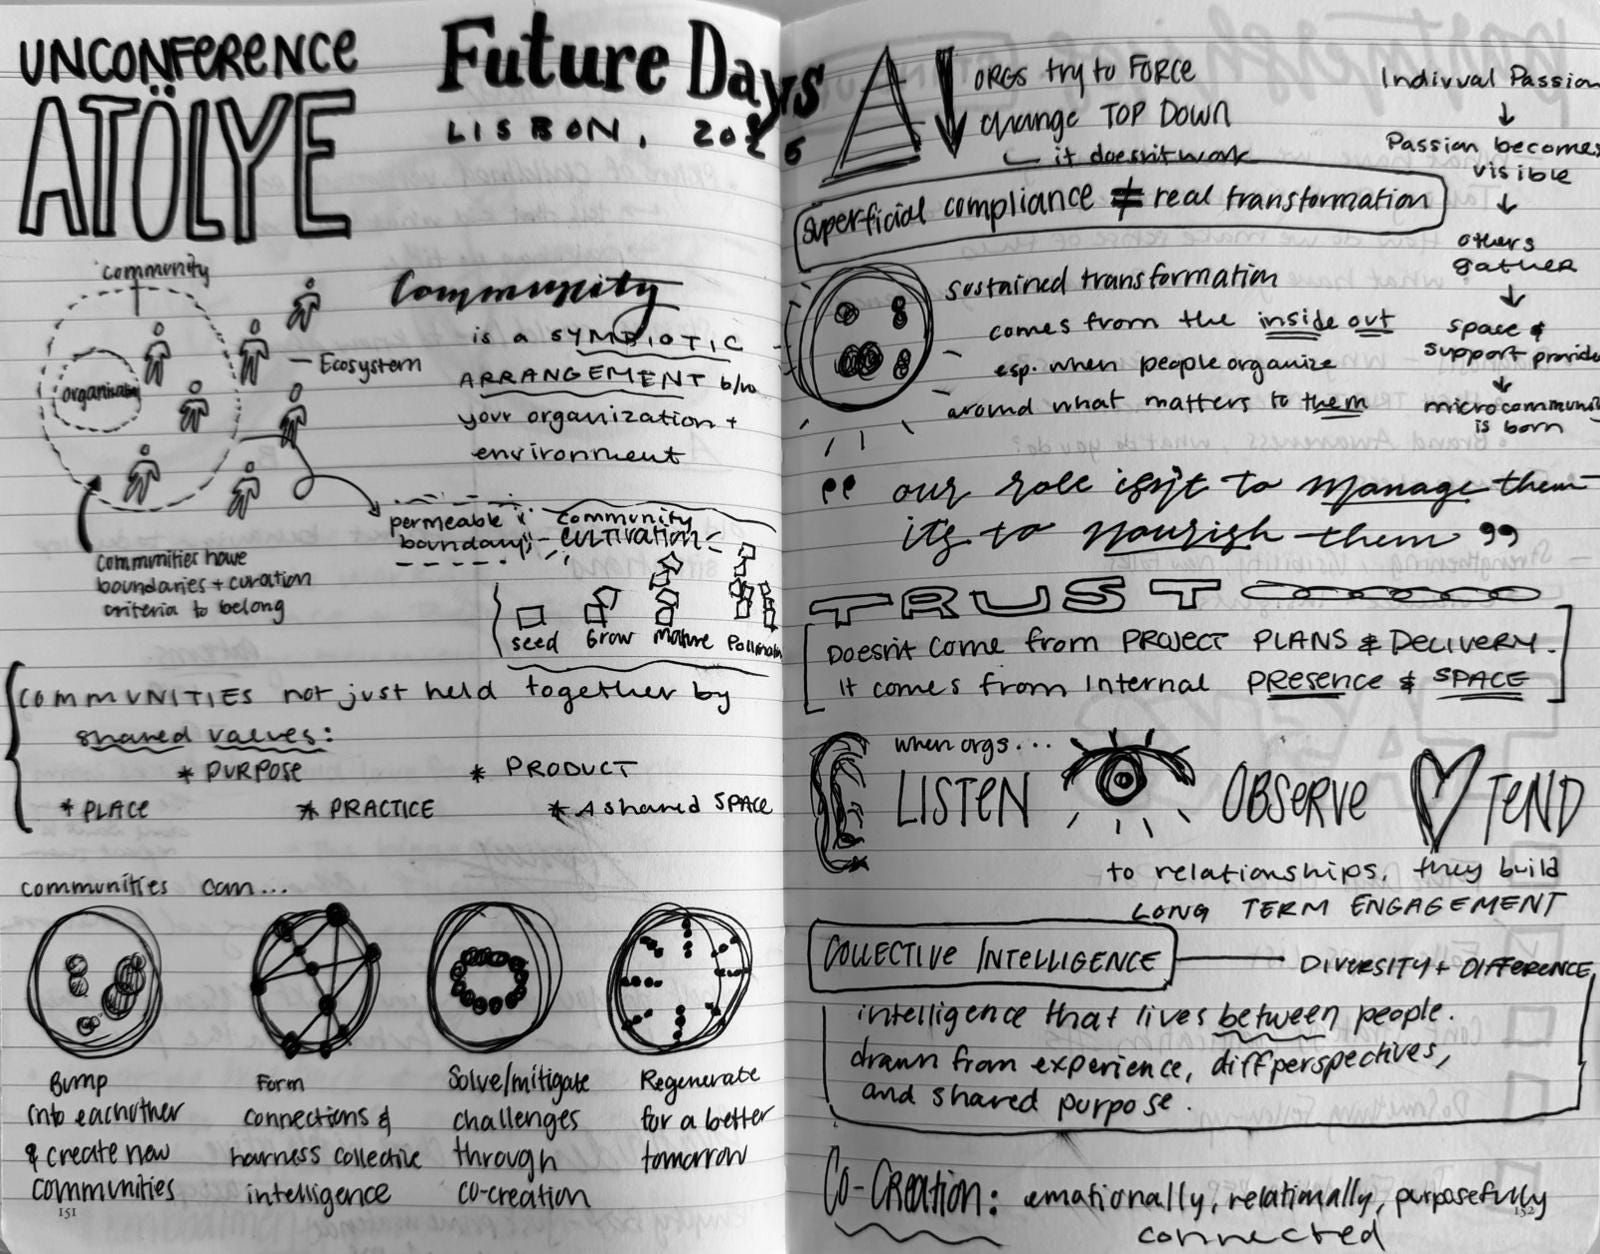 UNCONFERENCE
ATÖLYE
Future Days
LISBON, 202 6
community
organization
Ecosystem
Communities have
boundaries + curation
criteria to belong
Community
is a SYMBIOTIC
ARRANGEMENT b/w
your organization +
environment
permeable
boundary
community
CULTIVATION
seed Grow Mature Pollinate
COMMUNITIES not just held together by
shared values:
* PURPOSE * PRODUCT
* PLACE * PRACTICE * A shared SPACE
communities can...
Bump
into eachother
& create new
communities
Form
connections &
harness collective
intelligence
Solve/mitigate
challenges
through
co-creation
Regenerate
for a better
tomorrow
151
ORGS try to FORCE
change TOP DOWN
it doesn't work
superficial compliance ≠ real transformation
sustained transformation
comes from the inside out
esp. when people organize
around what matters to them
Indivval Passion
↓
Passion becomes
visible
↓
others
gather
↓
space &
support provide
↓
microcommuni
is born
"our role isn't to manage them
it's to nourish them"
TRUST
Doesn't come from PROJECT PLANS & DELIVERY.
it comes from internal PRESENCE & SPACE
when orgs...
LISTEN OBSERVE TEND
to relationships, they build
LONG TERM ENGAGEMENT
COLLECTIVE INTELLIGENCE
DIVERSITY + DIFFERENCE
intelligence that lives between people.
drawn from experience, diff perspectives,
and shared purpose.
CO-CREATION: emotionally, relationally, purposefully
connected
152